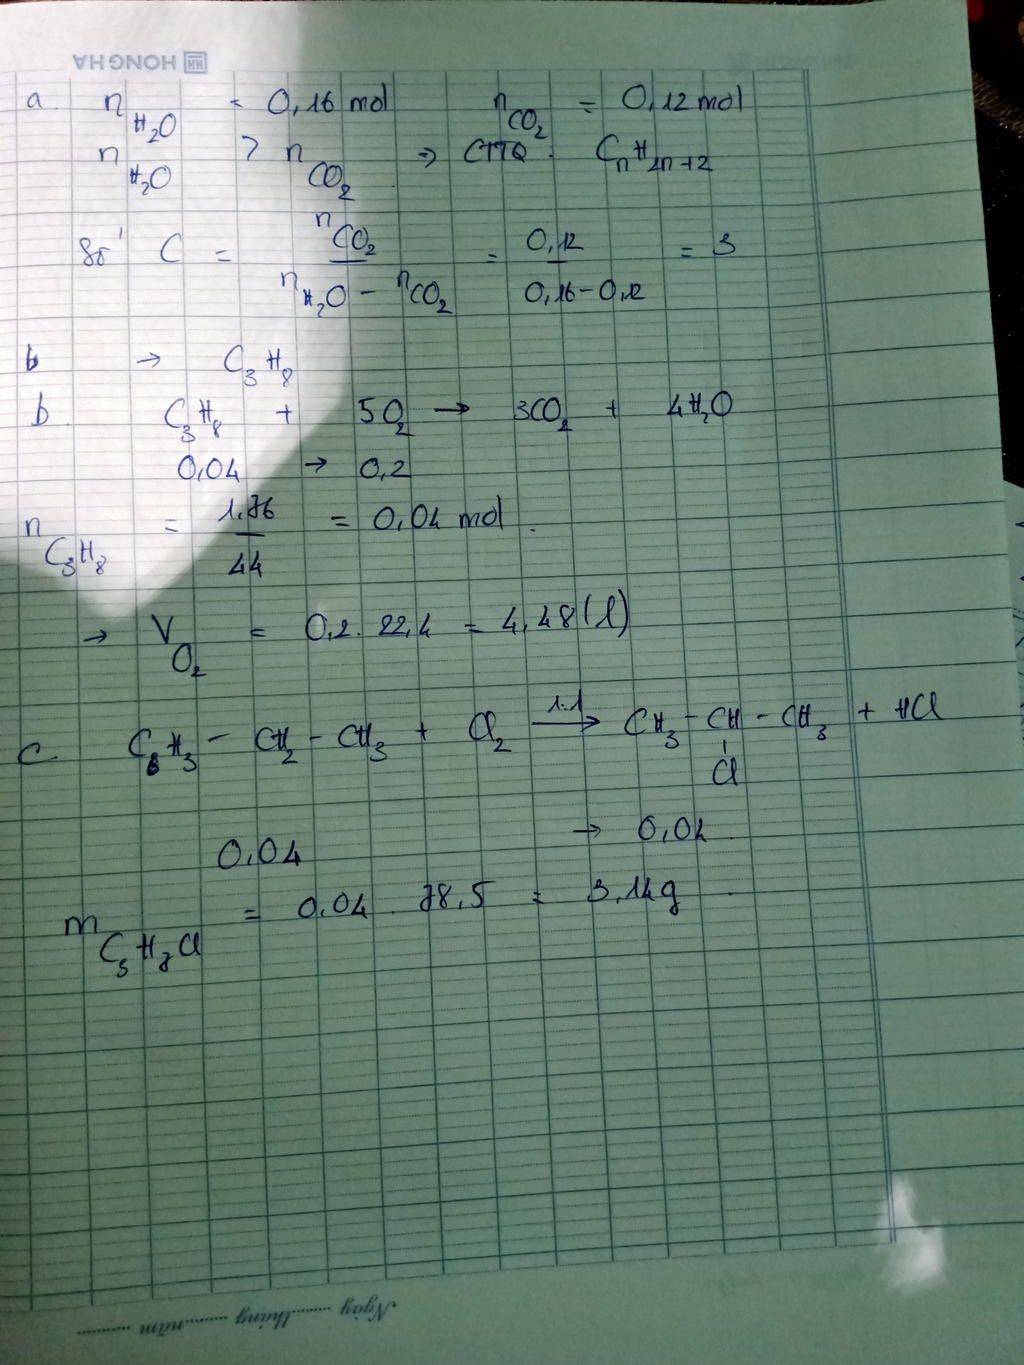 HH HONG HA
a. nH₂O = 0,16 mol nCO₂ = 0,12 mol
nH₂O > nCO₂ ⇒ CTTQ: CnH2n+2
Số C = nCO₂ / (nH₂O - nCO₂) = 0,12 / (0,16 - 0,12) = 3
b → C₃H₈
b. C₃H₈ + 5O₂ → 3CO₂ + 4H₂O
0,04 → 0,2
nC₃H₈ = 1,76 / 44 = 0,04 mol.
→ VO₂ = 0,2 . 22,4 = 4,48 (l)
c. CH₃ - CH₂ - CH₃ + Cl₂ —1:1→ CH₃ - CH - CH₃ + HCl
Cl
0,04 → 0,04
mC₃H₇Cl = 0,04 . 78,5 = 3,14g
Ngày ........ tháng ........ năm ........